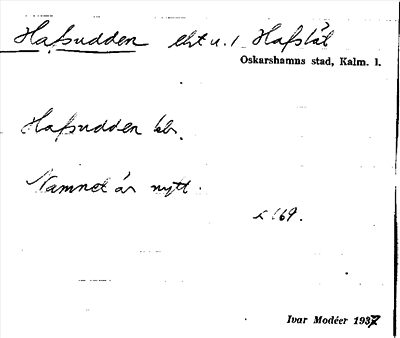 Hafsudden
Oskarshamns stad, Kalm. l.
Hafsudden
Namnet är nytt.
169.
Ivar Modéer 1937